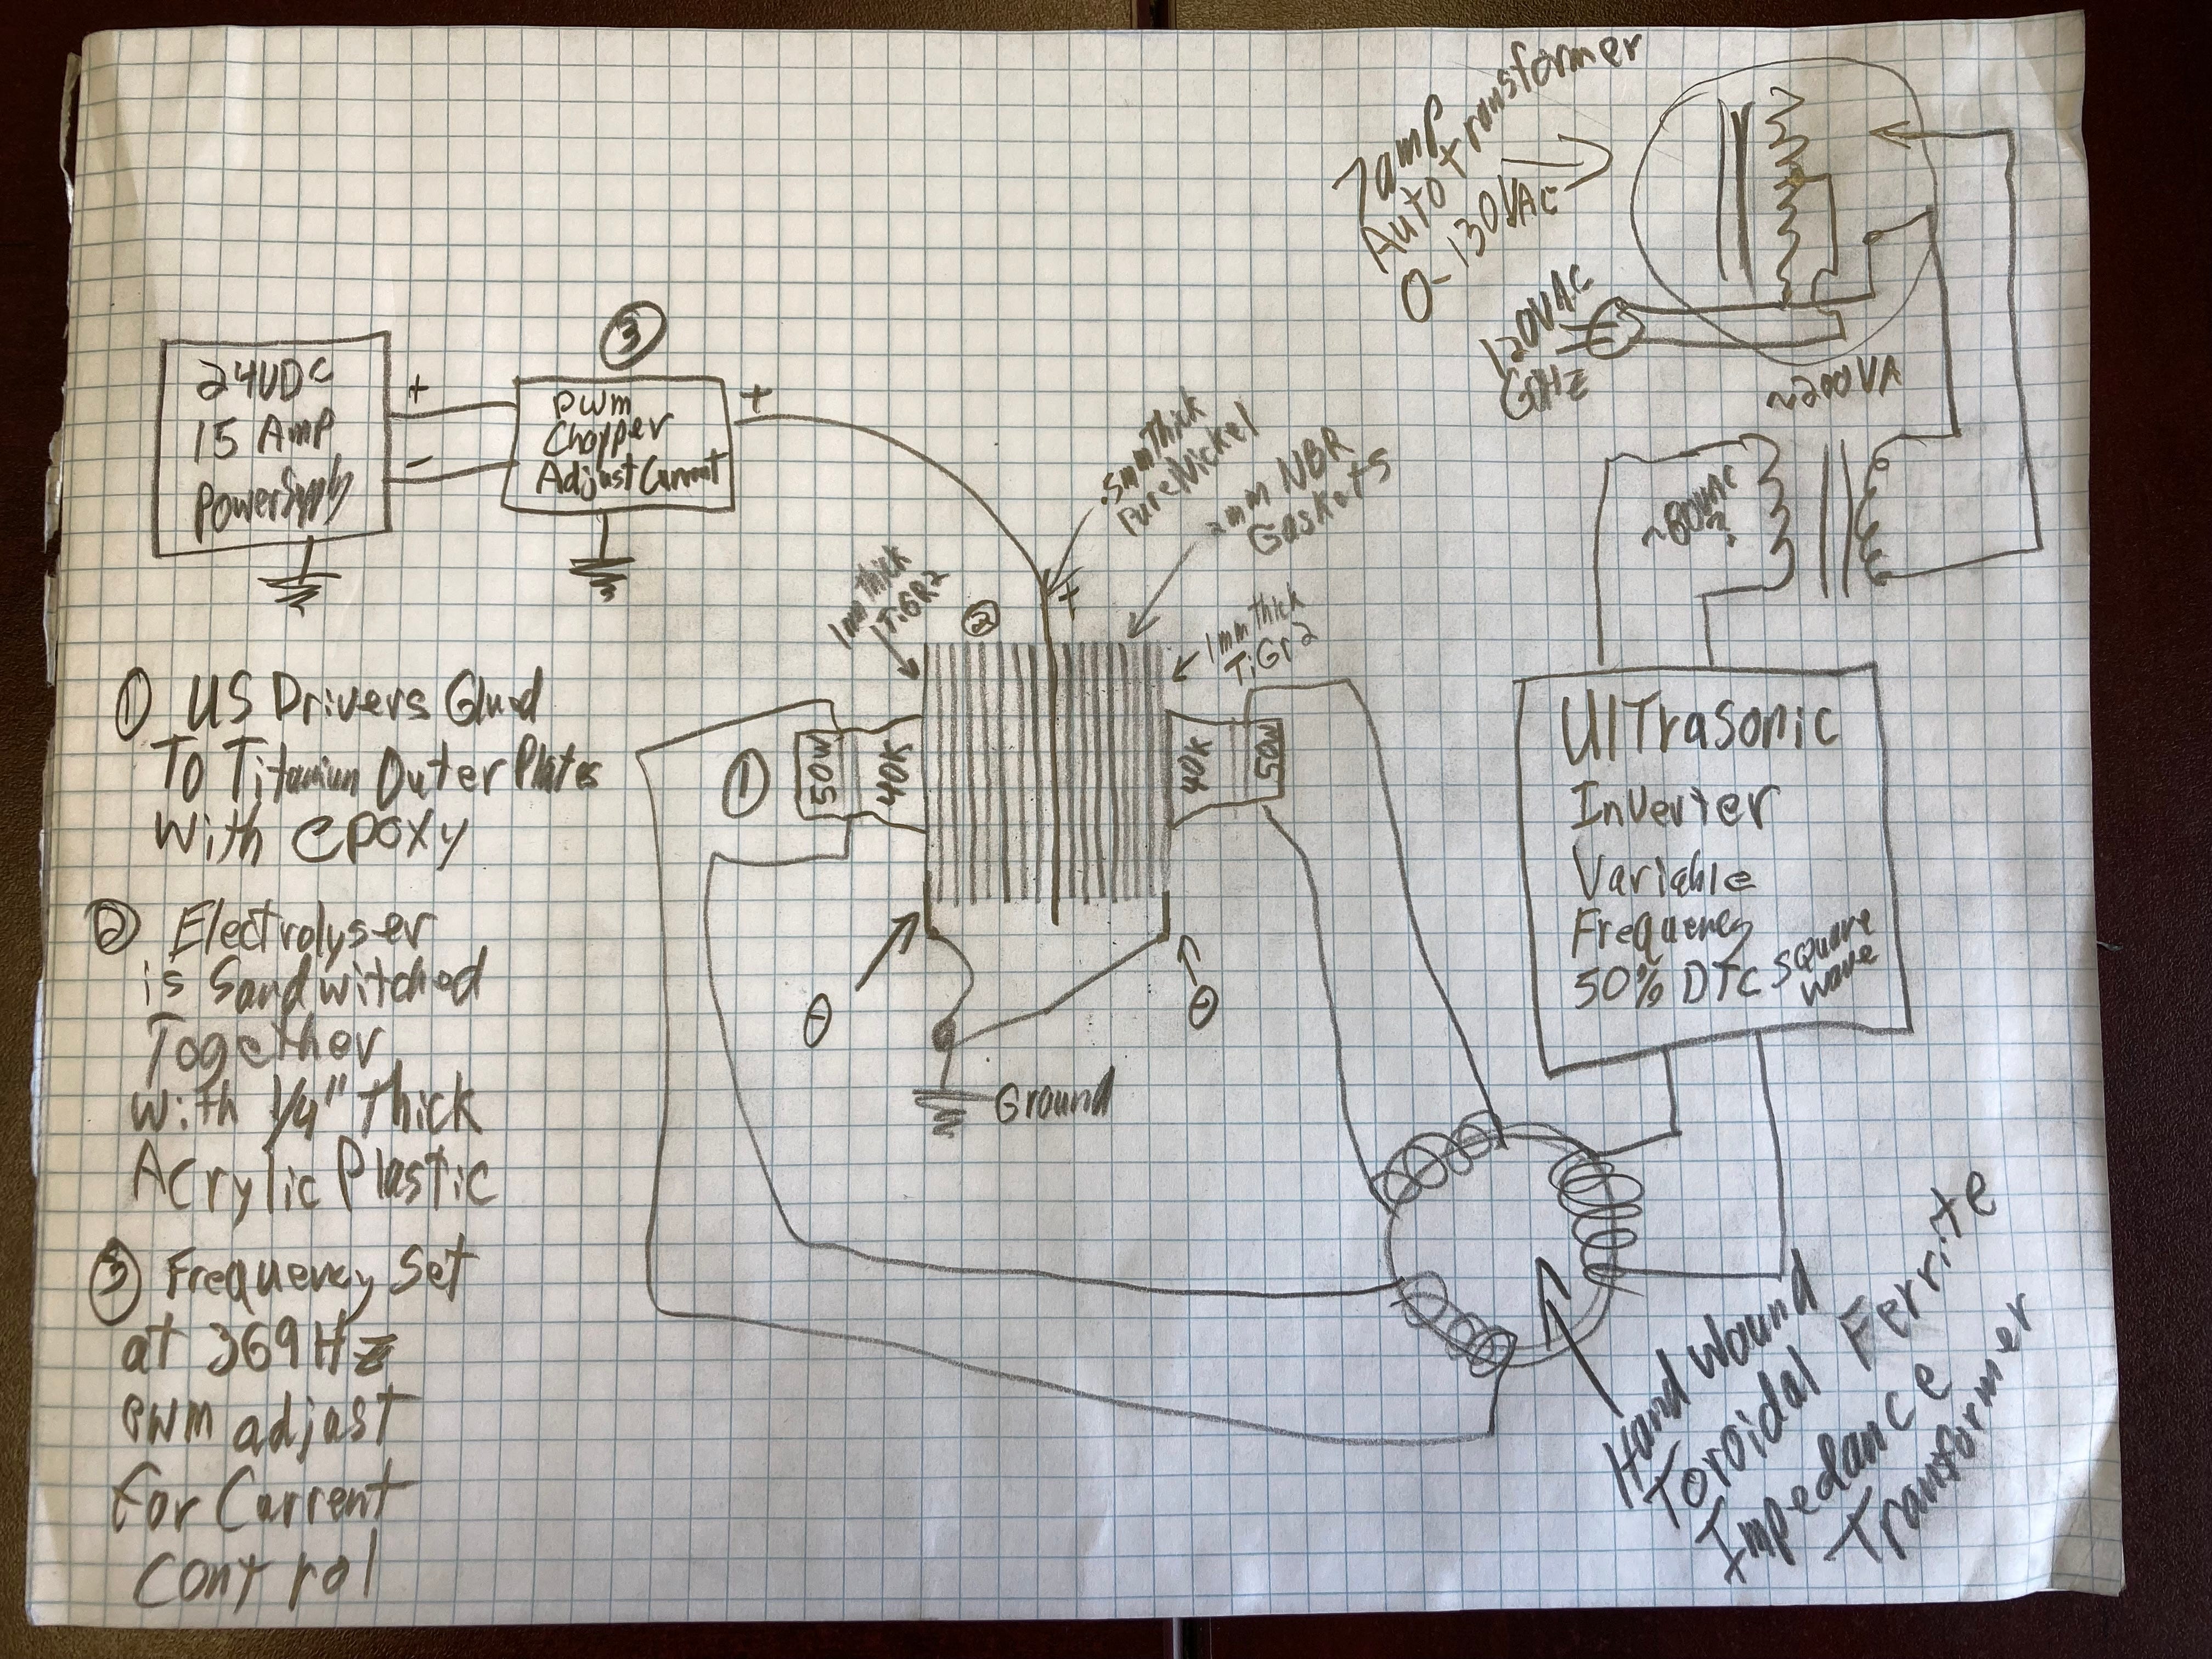 7amp
Auto transformer
0-130VAC
120VAC
60Hz
~200VA
~80VAC
?
24VDC
15 Amp
Power Supply
+
-
3
PWM
Chopper
Adjust Current
+
.5mm Thick
Pure Nickel
2mm NBR
Gaskets
1mm Thick
Ti GR2
2
+
1mm Thick
Ti Gr2
1
50W
40K
40K
50W
-
-
Ground
Ultrasonic
Inverter
Variable
Frequency
50% DTC Square
Wave
Hand Wound
Toroidal Ferrite
Impedance
Transformer
1 US Drivers Glued
To Titanium Outer Plates
With epoxy
2 Electrolyser
is Sandwitched
Together
With 1/4" Thick
Acrylic Plastic
3 Frequency Set
at 369Hz
PWM adjust
For Current
control